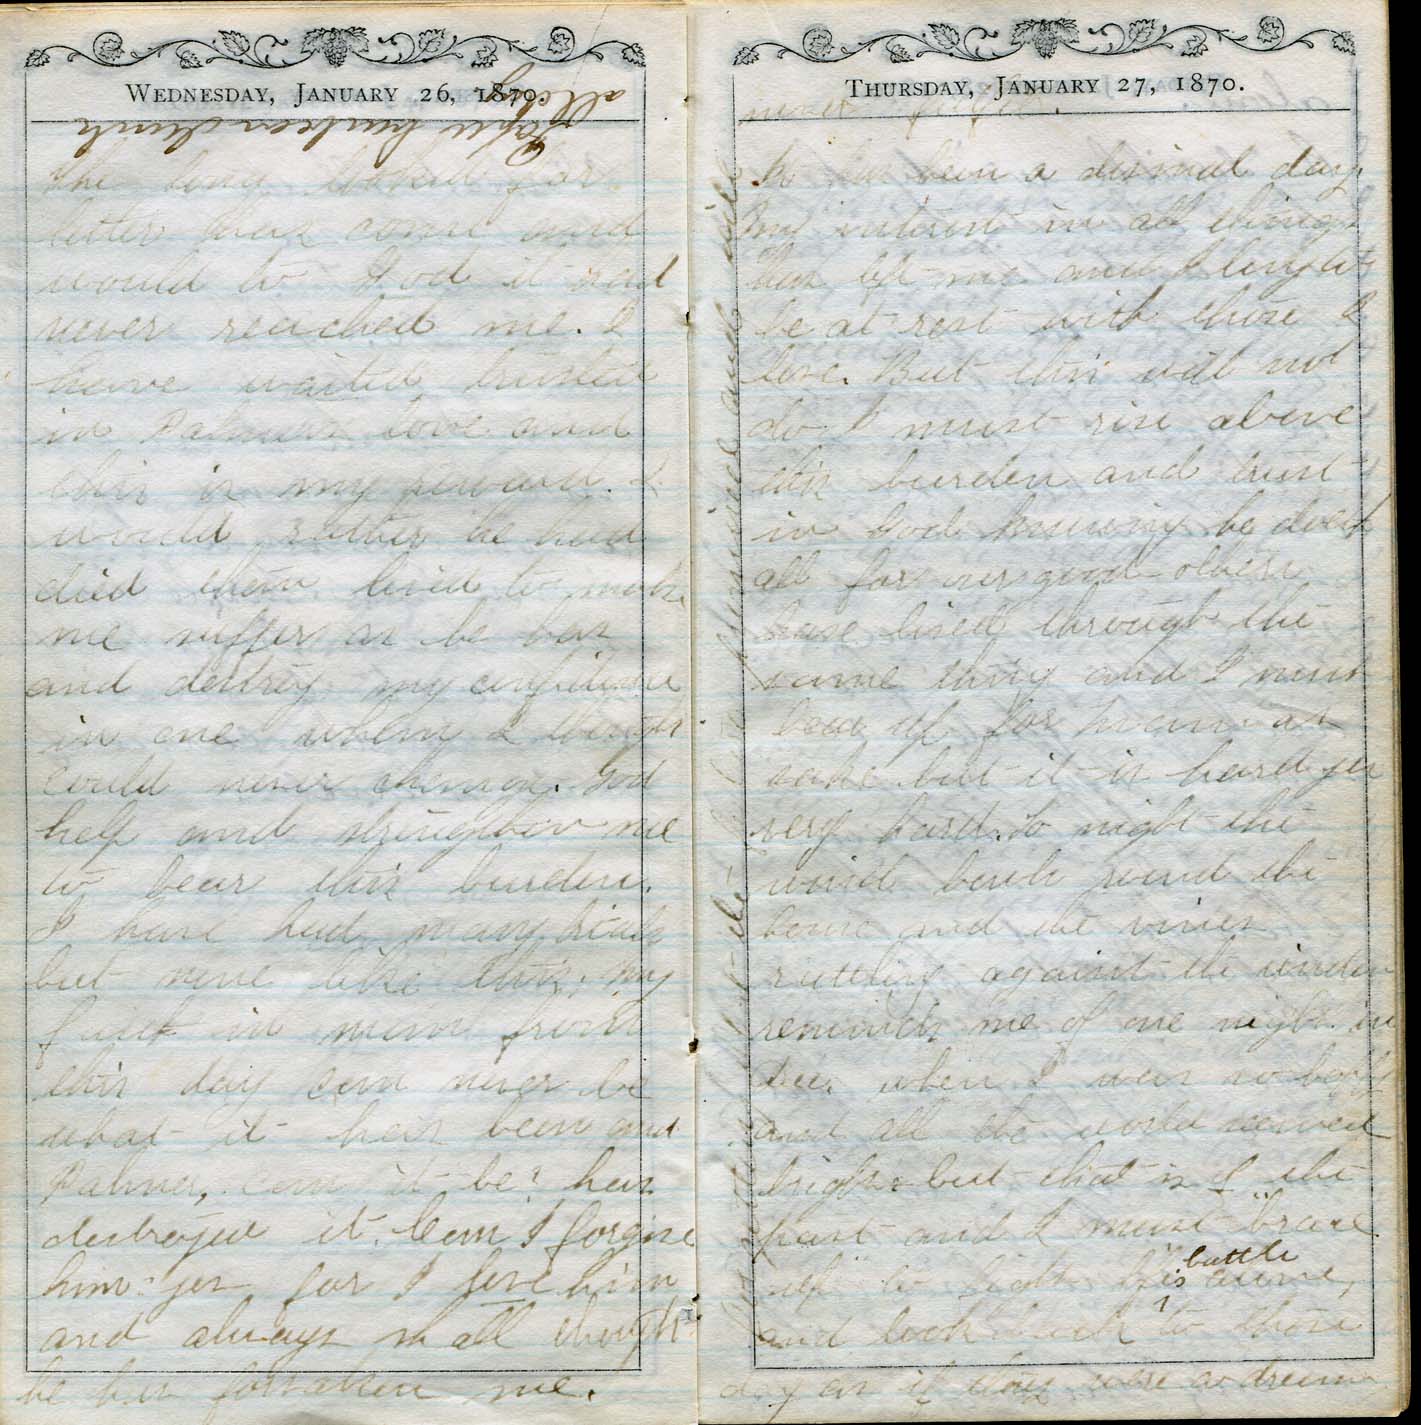 WEDNESDAY, JANUARY 26, 1870.
The long looked for
letter has come and
would to God it had
never reached me. I
have waited trusted
in Palmers love and
this is my reward. I
would rather he had
died than lived to make
me suffer as he has
and destroy my confidence
in one whom I thought
could never change. God
help and strengthen me
to bear this burden.
I have had many trials
but none like this. My
faith in man from
this day can never be
what it has been and
Palmer, can it be? has
destroyed it. Can I forgive
him? yes for I love him
and always shall though
he has forsaken me.
THURSDAY, JANUARY 27, 1870.
It has been a dismal day.
My interest in all things
has left me and I long to
be at rest with those I
love. But this will not
do I must rise above
this burden and trust
in God knowing he doeth
all for our good others
have lived through the
same thing and I must
bear up for mamas
sake but it is hard yes
very hard. To night the
wind howls round the
house and the vines
rattling against the window
reminds me of one night in
Dec. when I was so happy
and all the world seemed
bright but that is of the
past and I must "brave
up" to fight life's battle alone,
and look back to those
days as if they were a dream